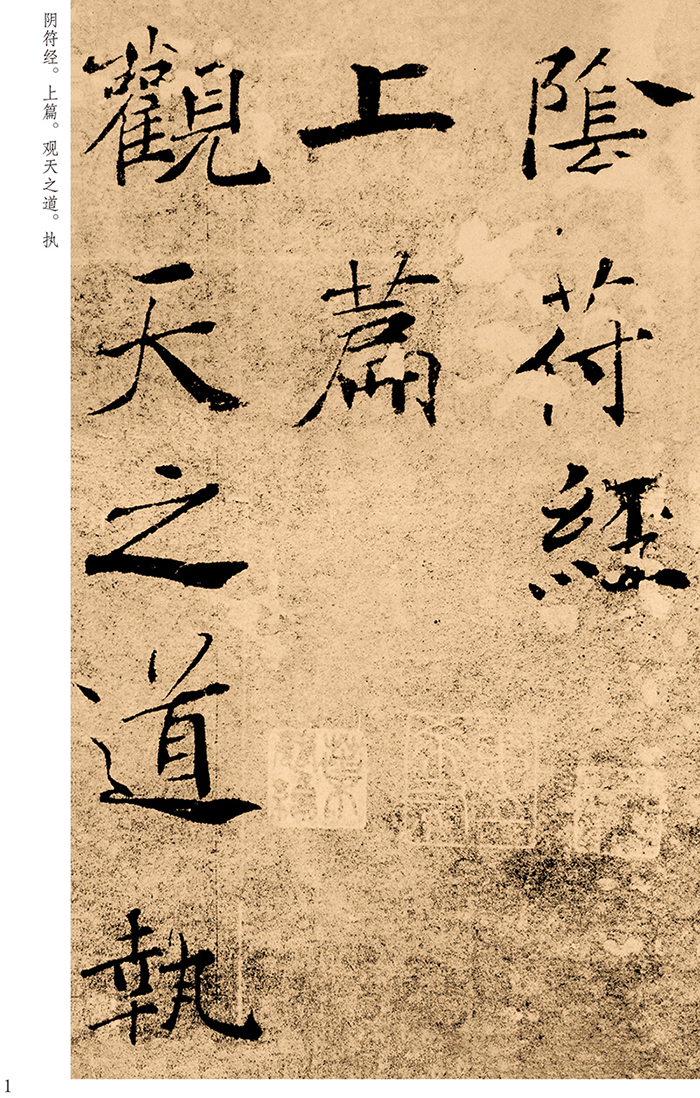 陰符經
上篇
觀天之道執
阴符经。上篇。观天之道。执
1